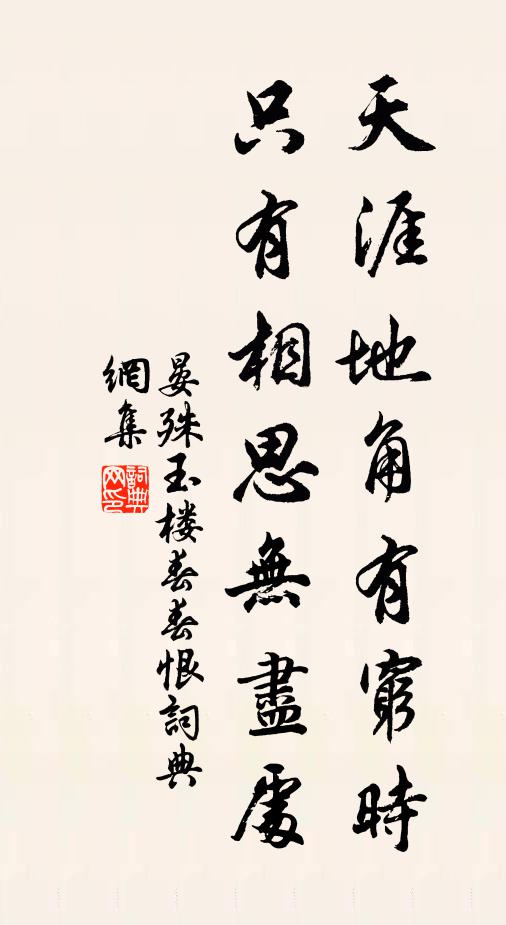 天涯地角有窮時
只有相思無盡處
晏殊玉楼春春恨詞典
網集
詞典
网印